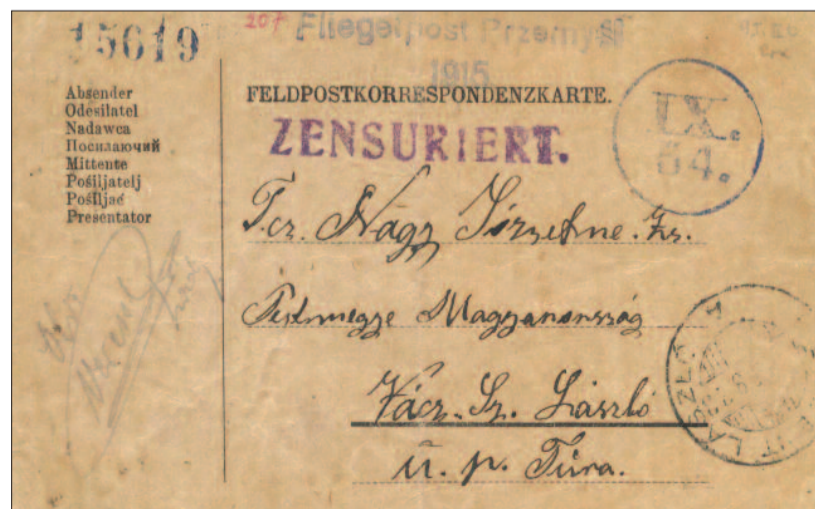 15619
20f Fliegerpost Przemyśl
1915
Absender
Odesilatel
Nadawca
Посилаючий
Mittente
Pošiljatelj
Pošiljač
Presentator
FELDPOSTKORRESPONDENZKARTE.
ZENSURIERT.
IX.
54.
T.cz. Nagy Józsefne
Pestmegye Magyarország
Vácz. Sz. László
u. p. Tura.
LÁSZLÓ